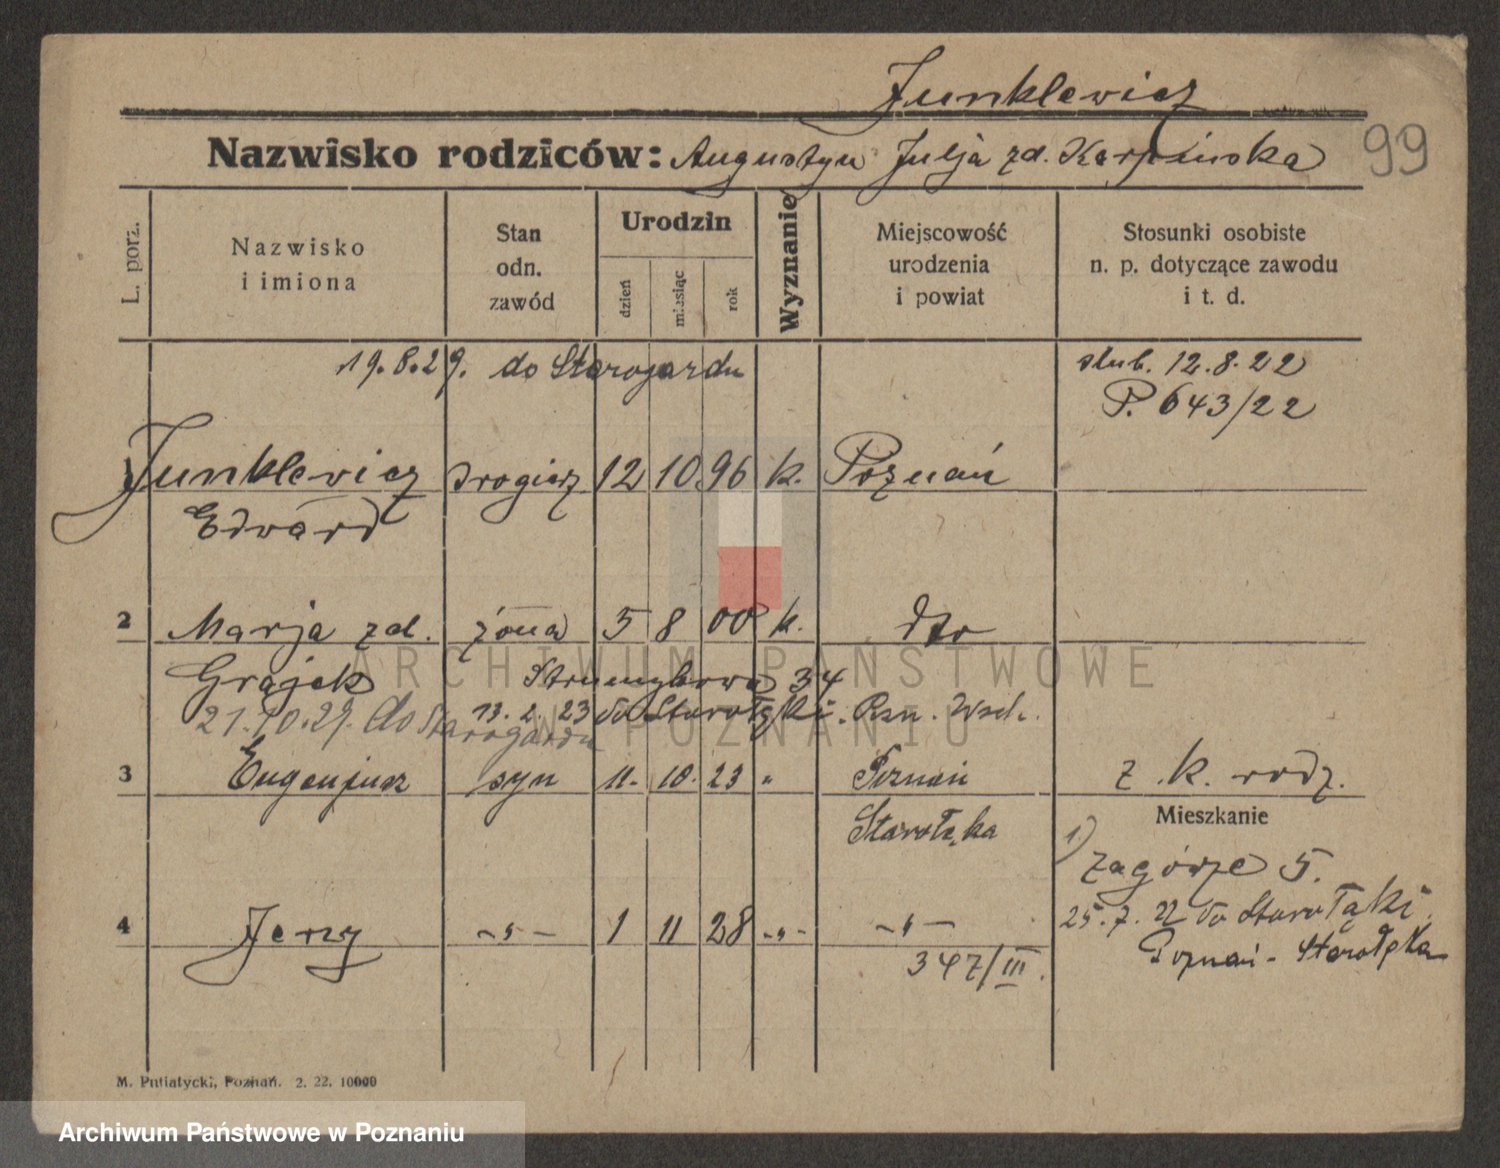 Junklewicz
Nazwisko rodziców: Augustyn Julja zd. Karpińska 99
L. porz.
Nazwisko
i imiona
Stan
odn.
zawód
Urodzin
dzień
miesiąc
rok
Wyznanie
Miejscowość
urodzenia
i powiat
Stosunki osobiste
n. p. dotyczące zawodu
i t. d.
19.8.29. do Starogardu
slub. 12.8.22
P. 643/22
1 Junklewicz drogierz 12 10 96 k. Poznań
Edward
2 Marja zd. żona 5 8 00 k. dto
Grajek
34
21.10.29. do Starogardu
13. 2. 23 do Starołęki. Pzn. Wsch.
3 Eugenjusz syn 11. 10. 23 " Poznań z k. rodz.
Starołęka
Mieszkanie
1) Zagórze 5.
25.7.22 do Starołąki
Poznań - Starołęka
4 Jerzy -"- 1 11 28 -"- -"-
347/III.
M. Putiatycki, Poznań. 2. 22. 10000
ARCHIWUM PAŃSTWOWE
W POZNANIU
Archiwum Państwowe w Poznaniu